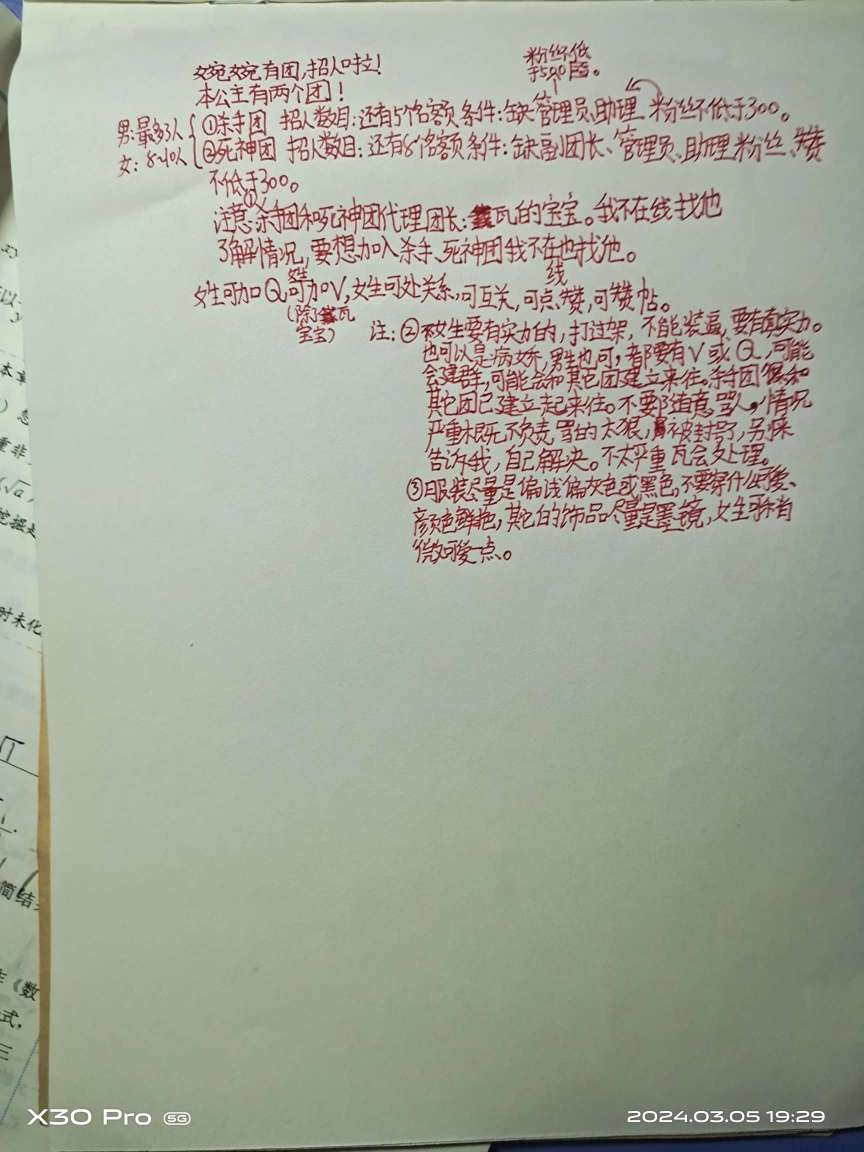 婉婉有团,招人啦!
本公主有两个团!
粉丝不低
于500
男:最多3人
女:8~10人
①杀手团 招人数目:还有5个名额 条件:缺管理员、助理 粉丝不低于300。
②死神团 招人数目:还有8个名额 条件:缺副团长、管理员、助理 粉丝、赞
不低于300。
注意:①杀手团和死神团代理团长:瓦的宝宝。我不在线找他
了解情况,要想加入杀手、死神团我不在线也找他。
女生可加Q 可加V,女生可处关系,可互关,可点赞,可赞帖。
(除了瓦
宝宝)
注:②女生要有实力的,打过架,不能装逼,要有真实力。
也可以是病娇,男生也可,都要有V或Q,可能
会建群,可能会和其它团建立来往。杀手团
其它团已建立起来往。不要随意骂人,情况
严重概不负责,骂的太狠,被封号,另
告诉我,自己解决。不太严重瓦会处理。
③服装尽量是偏浅偏灰色或黑色,不要穿什么可爱、
颜色鲜艳,其它的饰品尽量是墨镜,女生可稍
微可爱点。
本章
重非
时未化
简结
《数
式,
三
X30 Pro 5G
2024.03.05 19:29